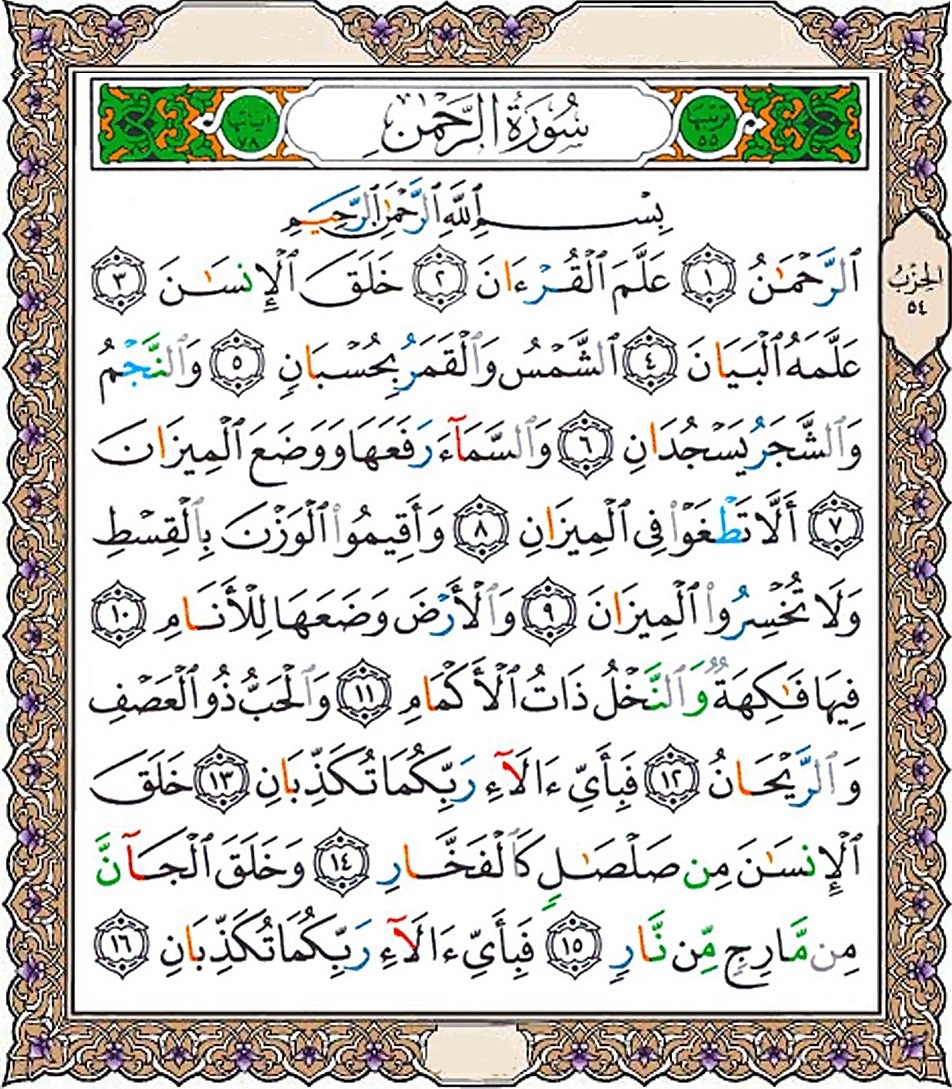 ترتيبها ٥٥
سُورَةُ الرَّحْمٰنِ
آياتها ٧٨
بِسْمِ ٱللَّهِ ٱلرَّحْمَٰنِ ٱلرَّحِيمِ
ٱلرَّحْمَٰنُ ١ عَلَّمَ ٱلْقُرْءَانَ ٢ خَلَقَ ٱلْإِنسَٰنَ ٣
الحِزْبُ
٥٤
عَلَّمَهُ ٱلْبَيَانَ ٤ ٱلشَّمْسُ وَٱلْقَمَرُ بِحُسْبَانٍ ٥ وَٱلنَّجْمُ
وَٱلشَّجَرُ يَسْجُدَانِ ٦ وَٱلسَّمَآءَ رَفَعَهَا وَوَضَعَ ٱلْمِيزَانَ
٧ أَلَّا تَطْغَوْا۟ فِى ٱلْمِيزَانِ ٨ وَأَقِيمُوا۟ ٱلْوَزْنَ بِٱلْقِسْطِ
وَلَا تُخْسِرُوا۟ ٱلْمِيزَانَ ٩ وَٱلْأَرْضَ وَضَعَهَا لِلْأَنَامِ ١٠
فِيهَا فَٰكِهَةٌ وَٱلنَّخْلُ ذَاتُ ٱلْأَكْمَامِ ١١ وَٱلْحَبُّ ذُو ٱلْعَصْفِ
وَٱلرَّيْحَانُ ١٢ فَبِأَىِّ ءَالَآءِ رَبِّكُمَا تُكَذِّبَانِ ١٣ خَلَقَ
ٱلْإِنسَٰنَ مِن صَلْصَٰلٍ كَٱلْفَخَّارِ ١٤ وَخَلَقَ ٱلْجَآنَّ
مِن مَّارِجٍ مِّن نَّارٍ ١٥ فَبِأَىِّ ءَالَآءِ رَبِّكُمَا تُكَذِّبَانِ ١٦